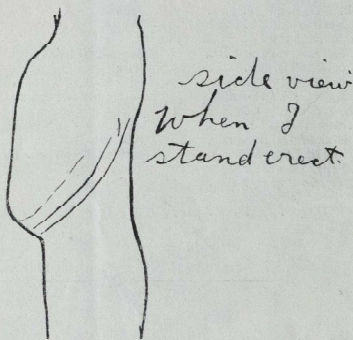 side view
when I
stand erect